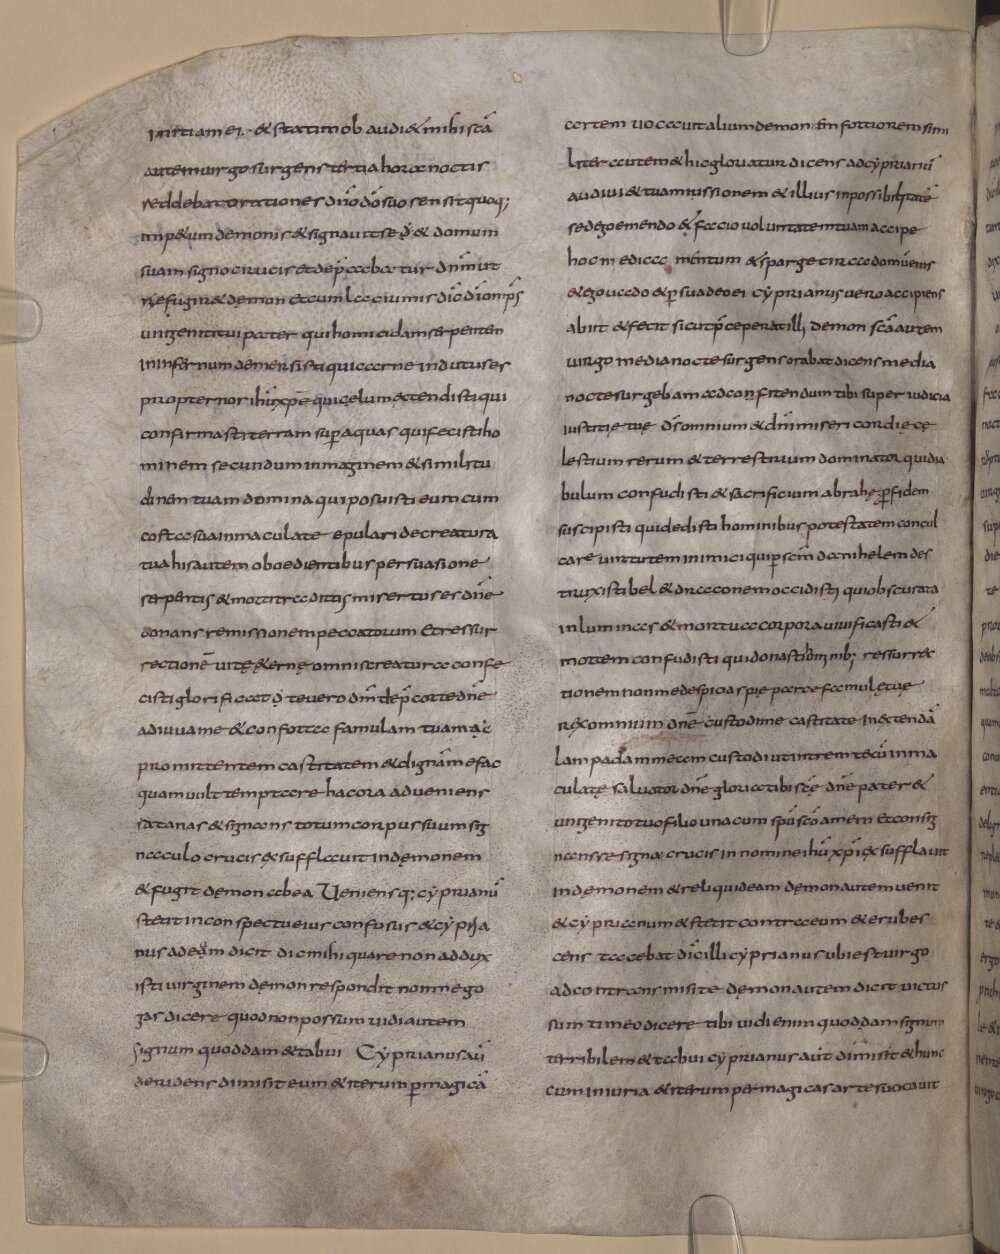 initiam ei. & statim obaudi& mihi scā
autem uirgo surgens tertia hora noctis
reddebat orationes dn̄o dō suo sensit quoq;
imp&um demonis & signauit se & domum
suam signo crucis et dep̄cabatur dn̄m ut
refugir& demon et cum lacrimis dic̄ dī omp̄s
unigeniti tui pater qui homicidam serpentem
in infernum demersisti qui carne indutus es
propter nos ih̄u xp̄e qui celum extendisti qui
confirmasti terram sup̱ aquas qui fecisti ho
minem secundum imaginem & similitu
dinem tuam domina qui posuisti eum cum
costa sua inmaculate epulari de creatura
tua his autem oboedientibus persuasione
serpentis & mortitraditis misertus es dn̄e
donans remissionem peccatorum et resur
rectionē uitę &ernę omnis creatura confe
cisti glorificat te uero dn̄m dep̄cor te dn̄e
adiuua me & conforta famulam tuam ac
promittentem castitatem & dignam efac
quam uult temptare hac ora adueniens
satanas & signans totum corpus suum sig
naculo crucis & sufflauit in demonem
& fugit demon ab ea Ueniensq; cyprianū
stetit in conspectu eius confusus & cypria
nus ad eum dicit dic mihi quare non addux
isti uirginem demon respondit non me go
gas dicere quod non possum uidi autem
signum quoddam & tabui Cyprianus aū
deridens dimisit eum & iterum p̱ magicā
artem uocauit alium demonem fortiorem simi
liter autem & hic gloriatur dicens ad cyprianū
audiui & tuam iussionem & illius inpossibilitatē
sed ego emendo & facio uoluntatem tuam accipe
hoc medicamentum & sparge circa domū eius
& ego uado & p̱suadeo ei cyprianus uero accipiens
abiit & fecit sicut p̄ceperat illi demon scā autem
uirgo media nocte surgens orabat dicens media
nocte surgebam ad confitendum tibi super iudicia
iustitię tuę ds̄ omnium & dn̄i misericordię cę
lestium rerum & terrestrium dominator qui dia
bulum confudisti & sacrificium abrahę p̱ fidem
suscipisti qui dedisti hominibus potestatem concul
care uirtutem inimici qui p̱ scm̄ danihelem des
truxisti bel & draconem occidisti qui obscurata
inluminas & mortua corpora uiuificasti &
mortem confudisti qui donasti omnib; resurrec
tionem non me despicias pie parce famulę tuę
rex omnium dn̄e custodi me castitate in extendā
lampadam meam custodi ut intrem tecū inma
culate saluator dn̄e gloria tibi scē dn̄e pater &
unigenito tuo filio una cum sp̄u scō amem et consig
nans se signo crucis in nomine ih̄u xp̄i & sufflauit
in demonem & reliquid eam demon autem uenit
& cyprianum & stetit contra eum & erubes
cens tacebat dīc illi cyprianus ubi est uirgo
ad contrans misi te demon autem dicit uictus
sum timeo dicere tibi uidi enim quoddam signum
terribilem & tabui cyprianus aut̄ dimisit & hunc
cum iniuria & iterum per magicas artes uocauit